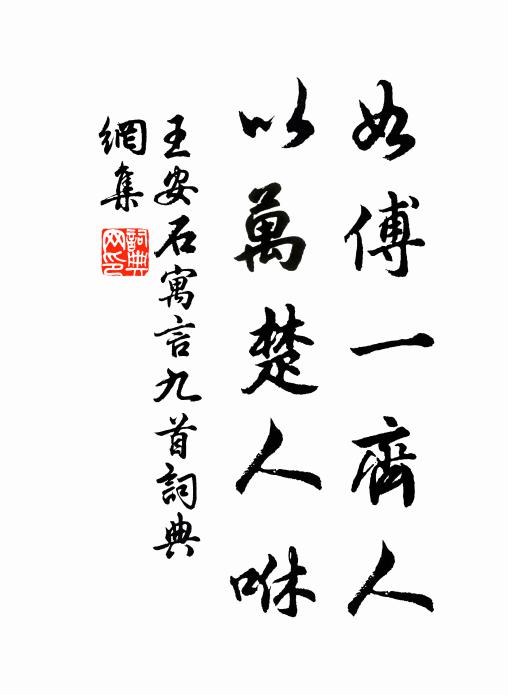 如傅一齊人
以萬楚人咻
王安石寓言九首詞典
網集
詞典
网印